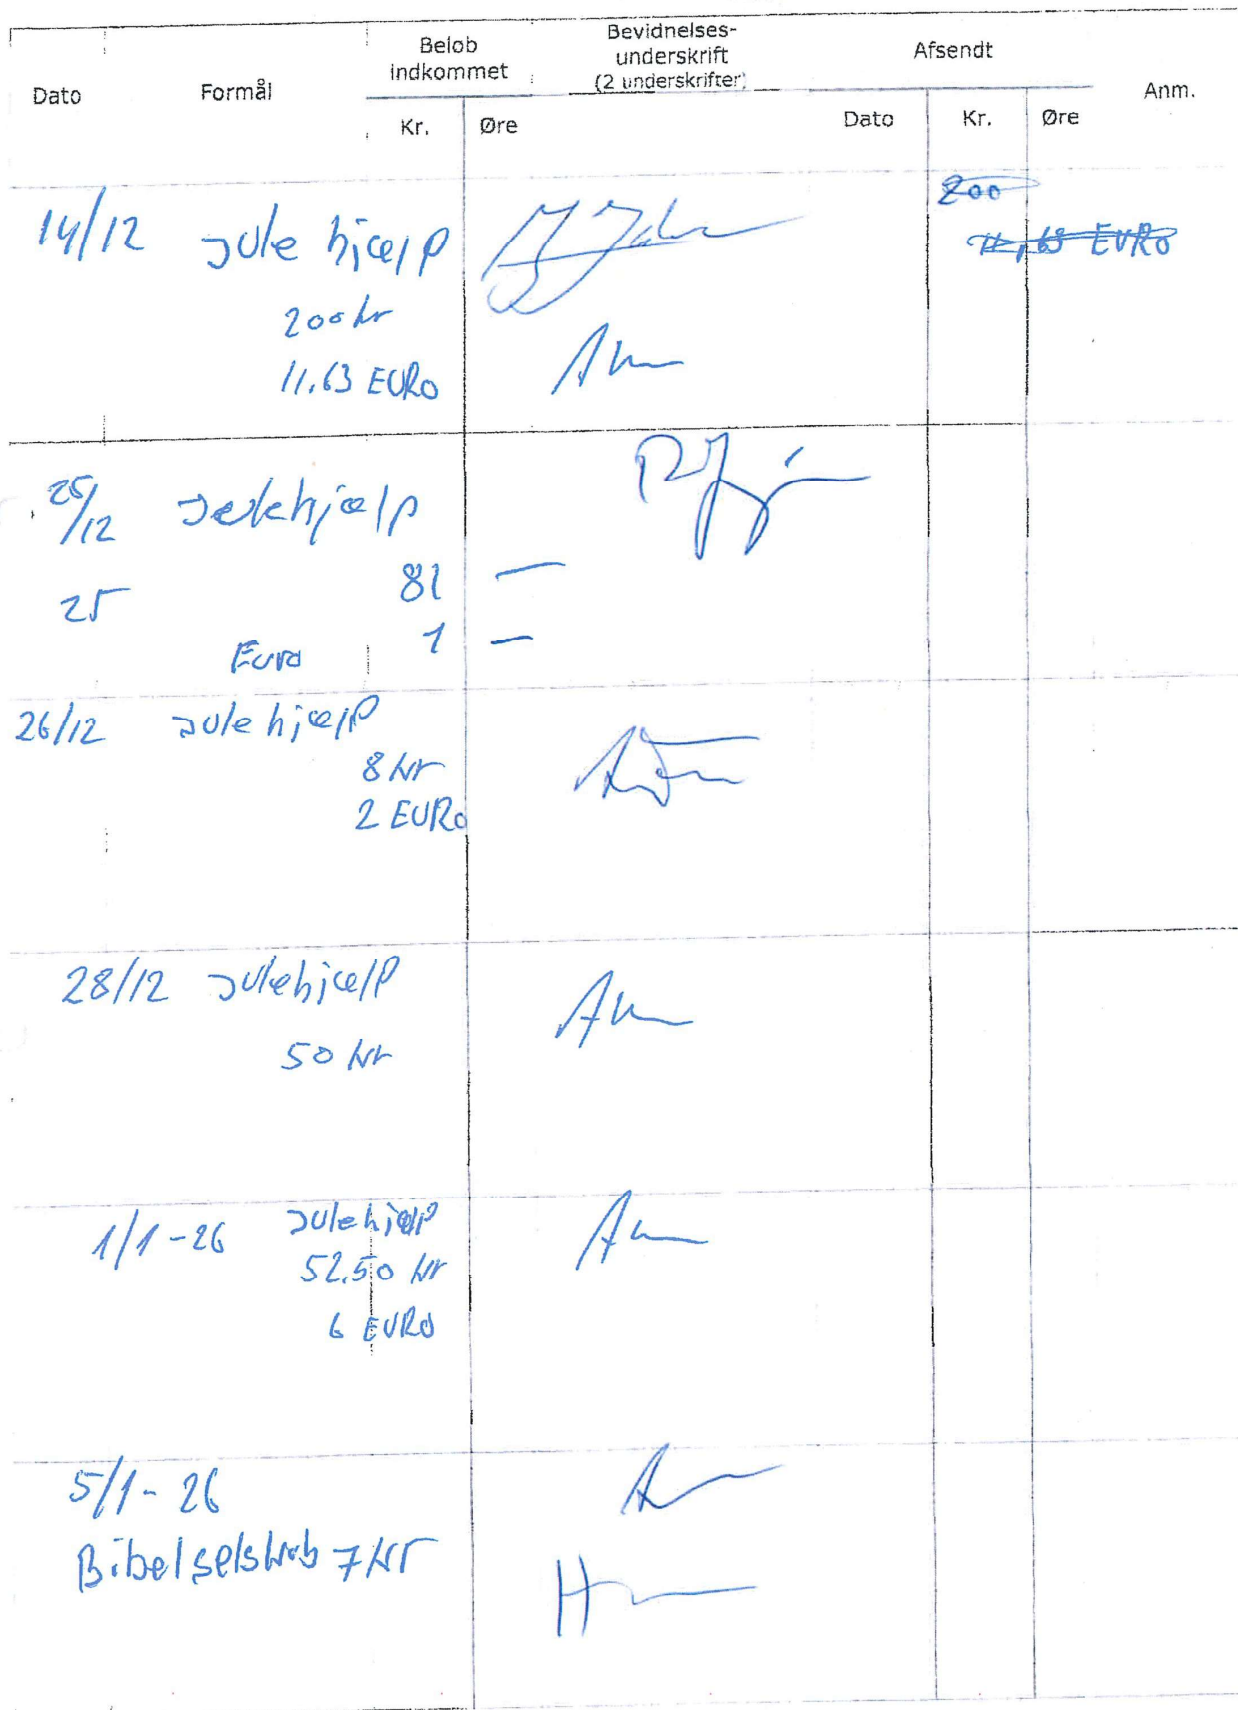 Dato Formål Beløb indkommet Bevidnelses-underskrift (2 underskrifter) Afsendt Anm.
Kr. Øre Dato Kr. Øre
14/12 Julehjælp 200
200 kr 11,63 EURO
11.63 EURO
25/12 Julehjælp
25 81 —
Euro 1 —
26/12 Julehjælp
8 kr
2 EURO
28/12 Julehjælp
50 kr
1/1-26 Julehjælp
52.50 kr
6 EURO
5/1-26
Bibelselskab 7 kr